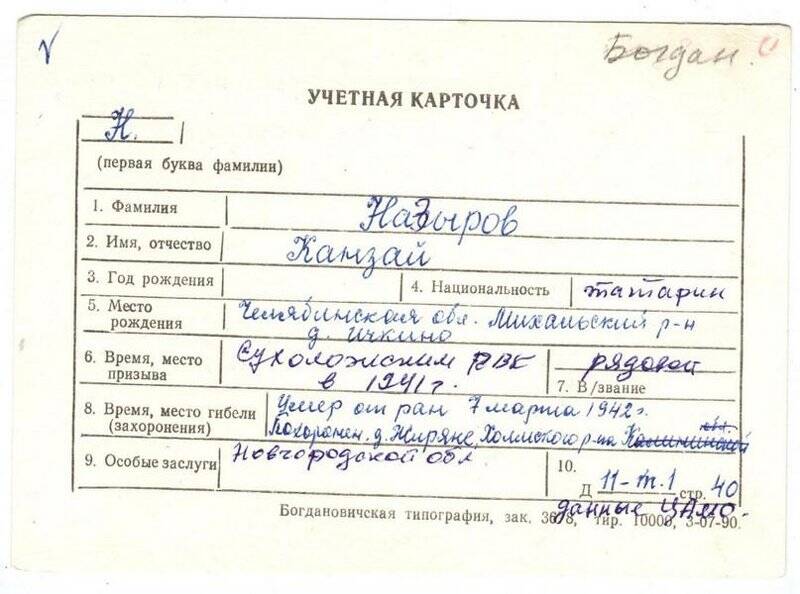 Богдан.
УЧЕТНАЯ КАРТОЧКА
Н.
(первая буква фамилии)
1. Фамилия Назыров
2. Имя, отчество Канзай
3. Год рождения 4. Национальность татарин
5. Место рождения Челябинская обл. Михальский р-н
д. Ичкино
6. Время, место призыва Сухоложским РВК
в 1941г.
рядовой
7. В/звание
8. Время, место гибели (захоронения) Умер от ран 7 марта 1942г.
Похоронен. д. Жиряне, Холмского р-на Калининской
обл.
Новгородской обл
9. Особые заслуги
10.
Д 11-т.1 стр. 40
данные ЦАМО.
Богдановичская типография, зак. 3678, тир. 10000, 3-07-90.